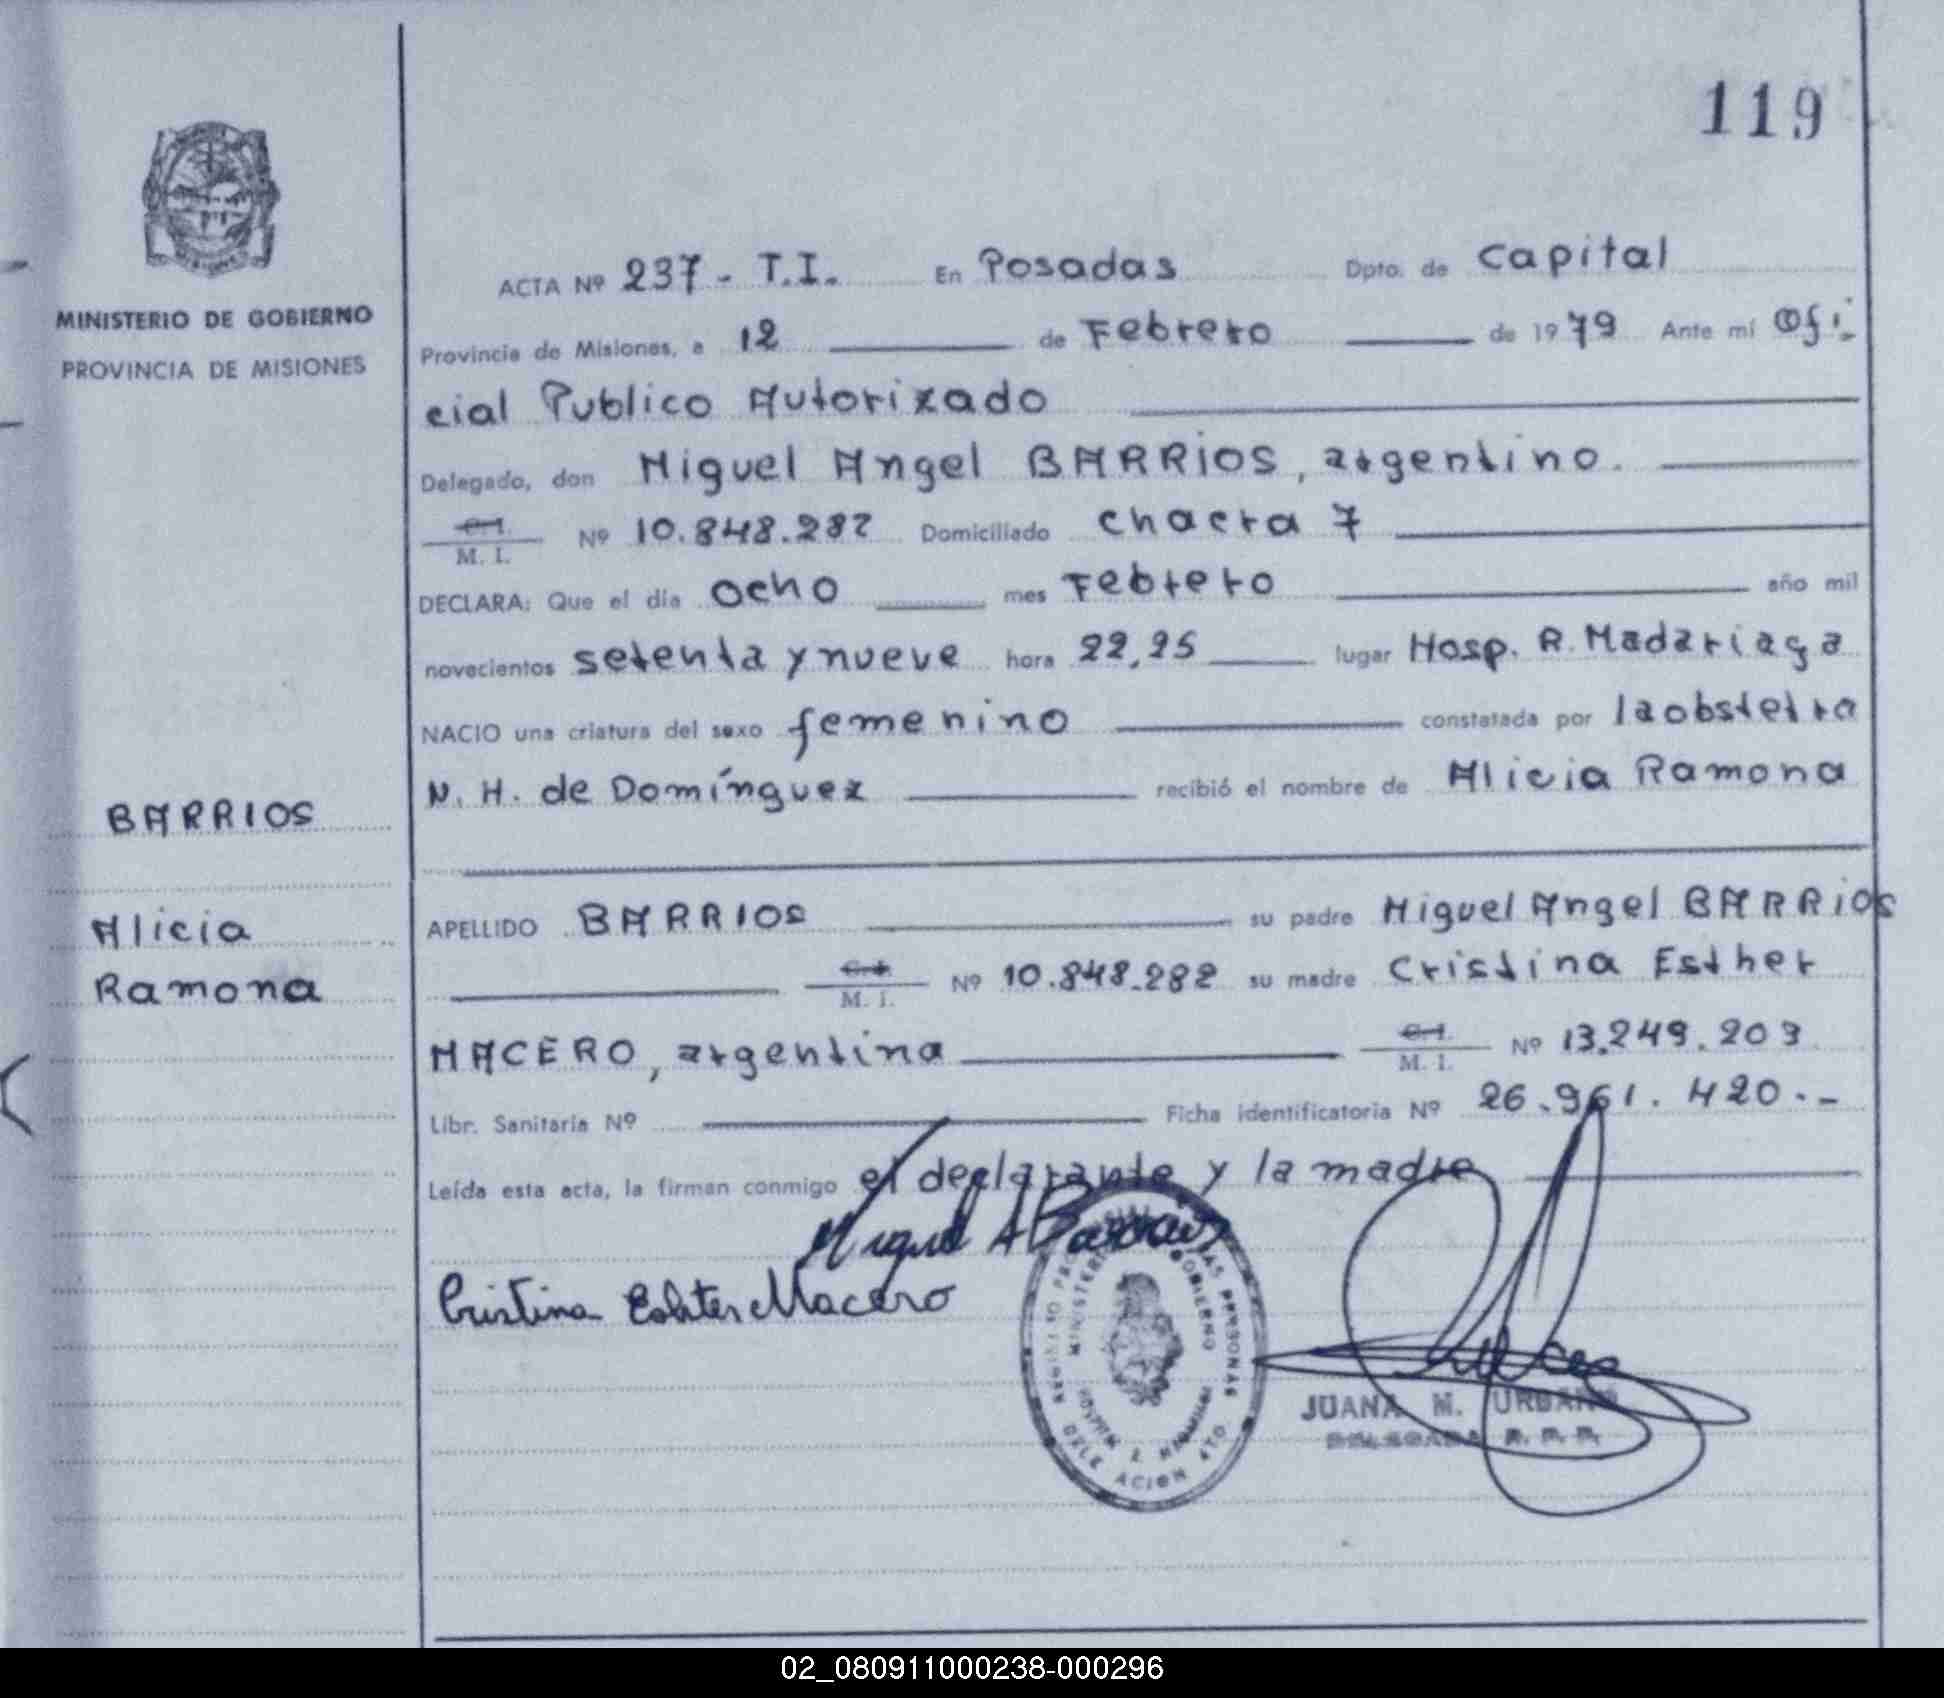 119
MINISTERIO DE GOBIERNO
PROVINCIA DE MISIONES
ACTA Nº 237 - T.I. En Posadas Dpto. de Capital
Provincia de Misiones, a 12 de Febrero de 1979 Ante mí Ofi-
cial Publico Autorizado
Delegado, don Miguel Angel BARRIOS, argentino.
C.I.
M. I. Nº 10.848.282 Domiciliado Chacra 7
DECLARA: Que el día ocho mes Febrero año mil
novecientos setenta y nueve hora 22,25 lugar Hosp. R. Madariaga
NACIO una criatura del sexo femenino constatada por la obstetra
N. H. de Domínguez recibió el nombre de Alicia Ramona
BARRIOS
Alicia
Ramona
APELLIDO BARRIOS su padre Miguel Angel BARRIOS
C.I.
M. I. Nº 10.848.282 su madre Cristina Esther
MACERO, argentina C.I. M. I. Nº 13.249.203
Libr. Sanitaria Nº Ficha identificatoria Nº 26.961.420.-
Leída esta acta, la firman conmigo el declarante y la madre
Miguel A Barrios
Cristina Eshter Macero
MINISTERIO GOBIERNO
DELEGACION 4TO
JUANA M. URBANO
02_080911000238-000296